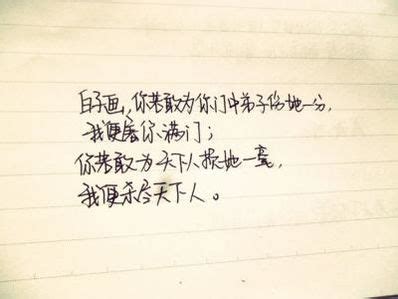 白子画，你若敢为你门中弟子伤她一分，
我便屠你满门；
你若敢为天下人损她一毫，
我便杀尽天下人。